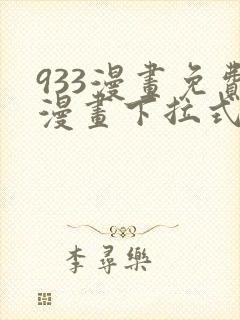 933漫畫免費
漫畫下拉式
李尋樂